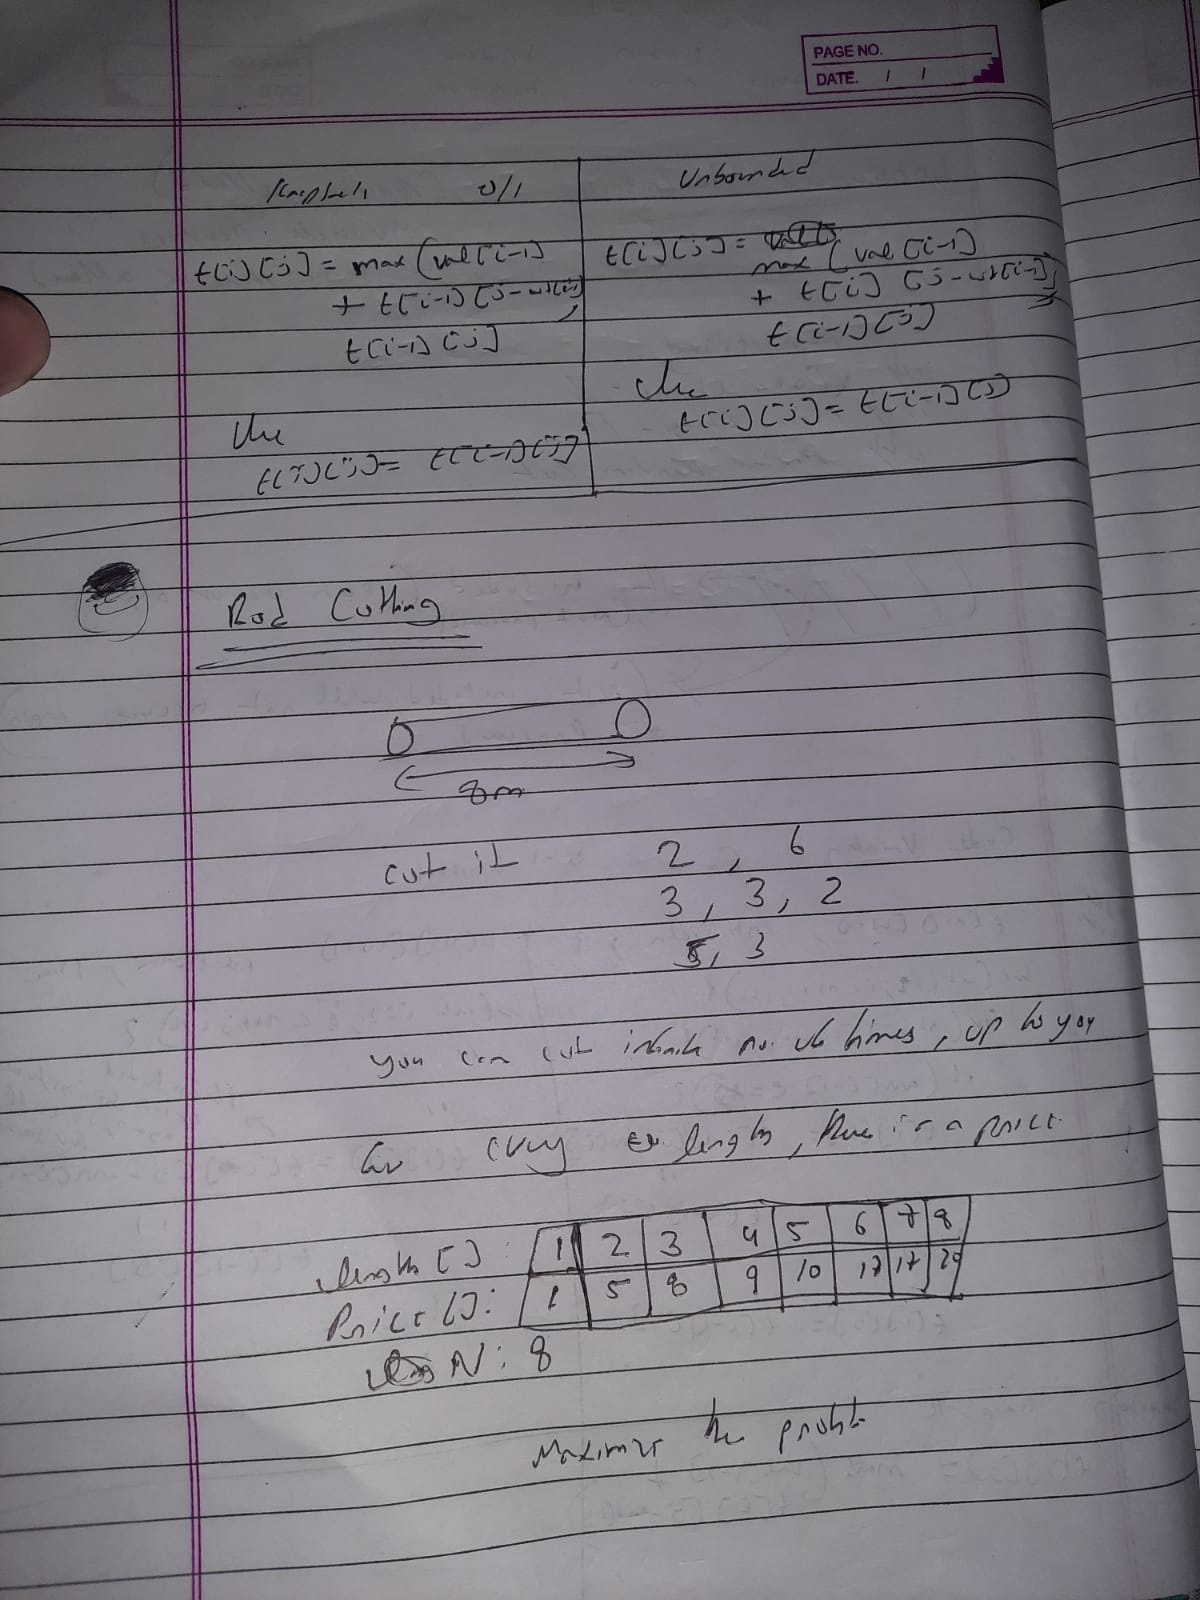 PAGE NO.
DATE. / /
Knapsack 0/1
t[i][j] = max (val[i-1]
+ t[i-1][j-wt[i-1]],
t[i-1][j]
else
t[i][j] = t[i-1][j]
Unbounded
t[i][j] =
max (val[i-1]
+ t[i][j-wt[i-1]],
t[i-1][j]
else
t[i][j] = t[i-1][j]
Rod Cutting
8m
cut it 2, 6
3, 3, 2
5, 3
you can cut infinite no. of times, up to you
for every length, there is a price.
length[]: 1 2 3 4 5 6 7 8
Price[]: 1 5 8 9 10 17 17 20
N: 8
Maximize the profit